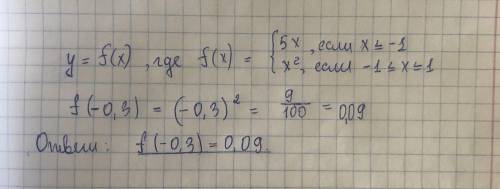 y = f(x), где f(x) = { 5x, если x ≤ -1
x², если -1 ≤ x ≤ 1
f(-0,3) = (-0,3)² = 9/100 = 0,09
Ответ: f(-0,3) = 0,09